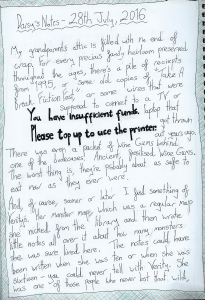 Daisy's Notes - 28th July, 2016
My grandparents attic is filled with no end of
crap. For every precious family heirloom preserved
throughout the ages, there's a pile of receipts
from 1995, or some old copies of 'Take A
Break Fiction Feast' or some wires that were
supposed to connect to a TV or
You have insufficient funds.
laptop that
got thrown
Please top up to use the printer.
out years ago.
There was even a packet of Wine Gums behind
one of the bookcases. Ancient, fossilised Wine Gums.
The worst thing is, they're probably about as safe to
eat now as they ever were.
And, of course, sooner or later I find something of
Verity's. Her monster map, which was a regular map
she nicked from the library and then wrote
little notes all over it about how many monsters
she was sure lived here. The notes could have
been written when she was ten or when she was
sixteen - you could never tell with Verity. She
was one of those people who never lost that wild,